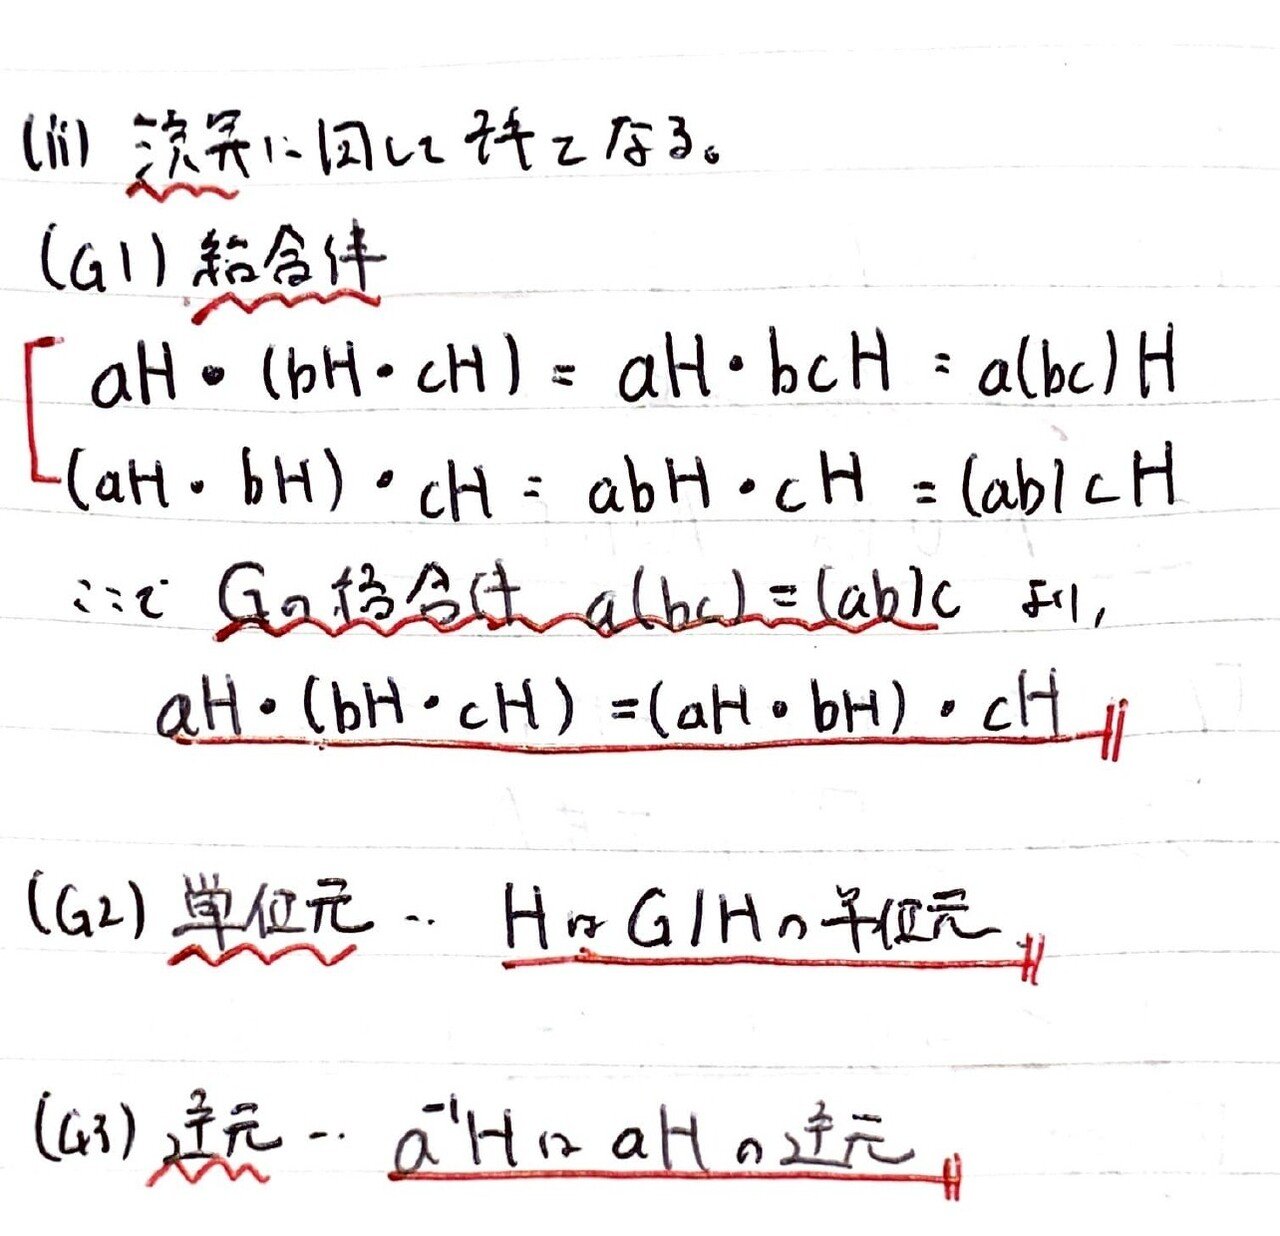 (ii) 演算に関して群となる。
(G1) 結合律
aH・(bH・cH) = aH・bcH = a(bc)H
(aH・bH)・cH = abH・cH = (ab)cH
ここで Gの結合律 a(bc)=(ab)c より,
aH・(bH・cH) =(aH・bH)・cH
(G2) 単位元 … HはG/Hの単位元
(G3) 逆元 … a⁻¹HはaHの逆元